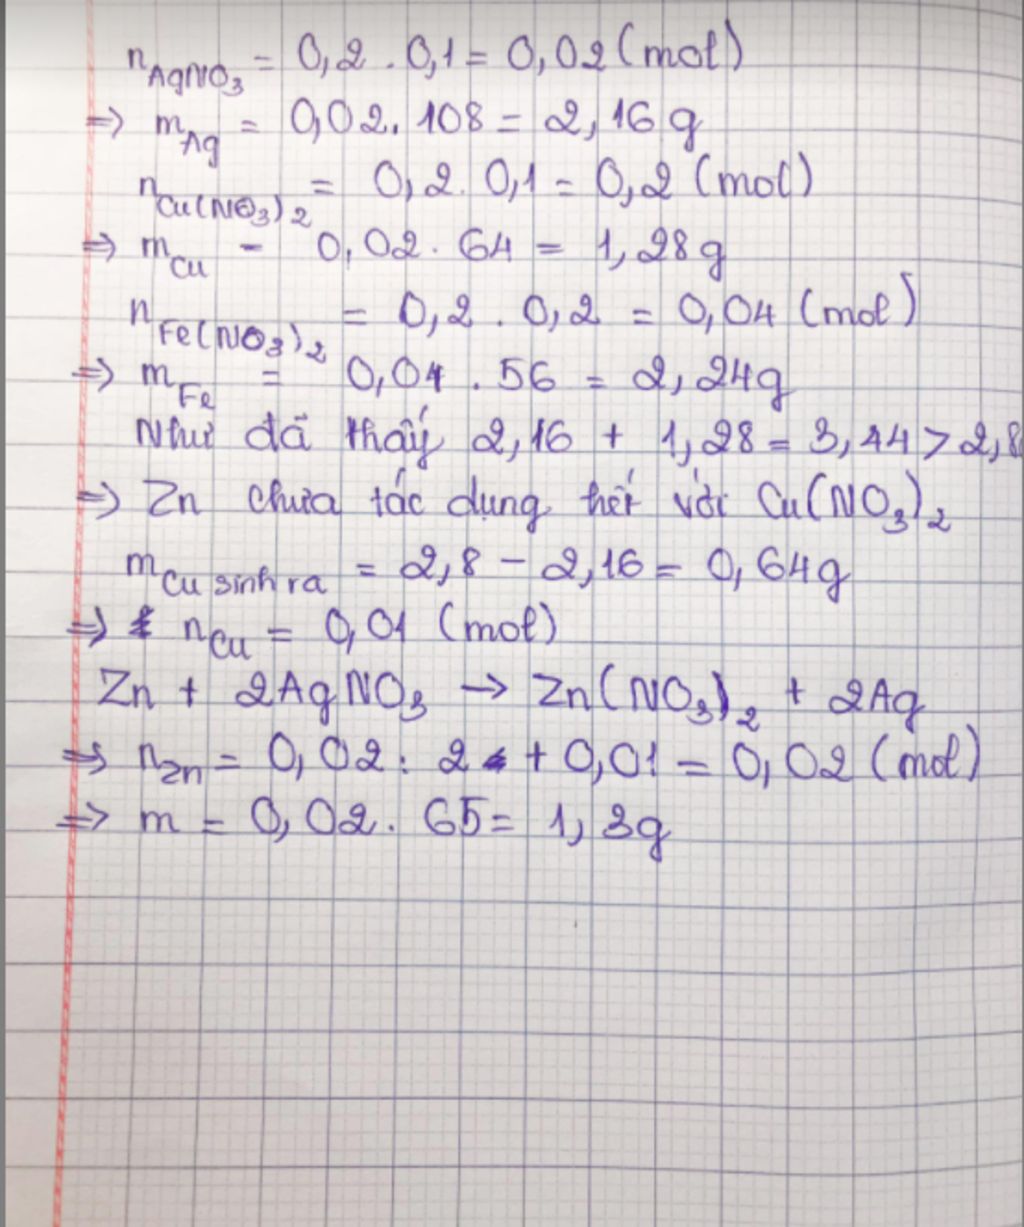 n AgNO3 = 0,2 . 0,1 = 0,02 (mol)
=> m Ag = 0,02. 108 = 2,16 g
n Cu(NO3)2 = 0,2. 0,1 = 0,2 (mol)
=> m Cu - 0,02. 64 = 1,28g
n Fe(NO3)2 = 0,2 . 0,2 = 0,04 (mol)
=> m Fe = 0,04 . 56 = 2,24g
Như đã thấy 2,16 + 1,28 = 3,44 > 2,8
=> Zn chưa tác dụng hết với Cu(NO3)2
m Cu sinh ra = 2,8 - 2,16 = 0,64g
=> n Cu = 0,01 (mol)
Zn + 2AgNO3 -> Zn(NO3)2 + 2Ag
=> n Zn = 0,02 : 2 + 0,01 = 0,02 (mol)
=> m = 0,02. 65 = 1,3g